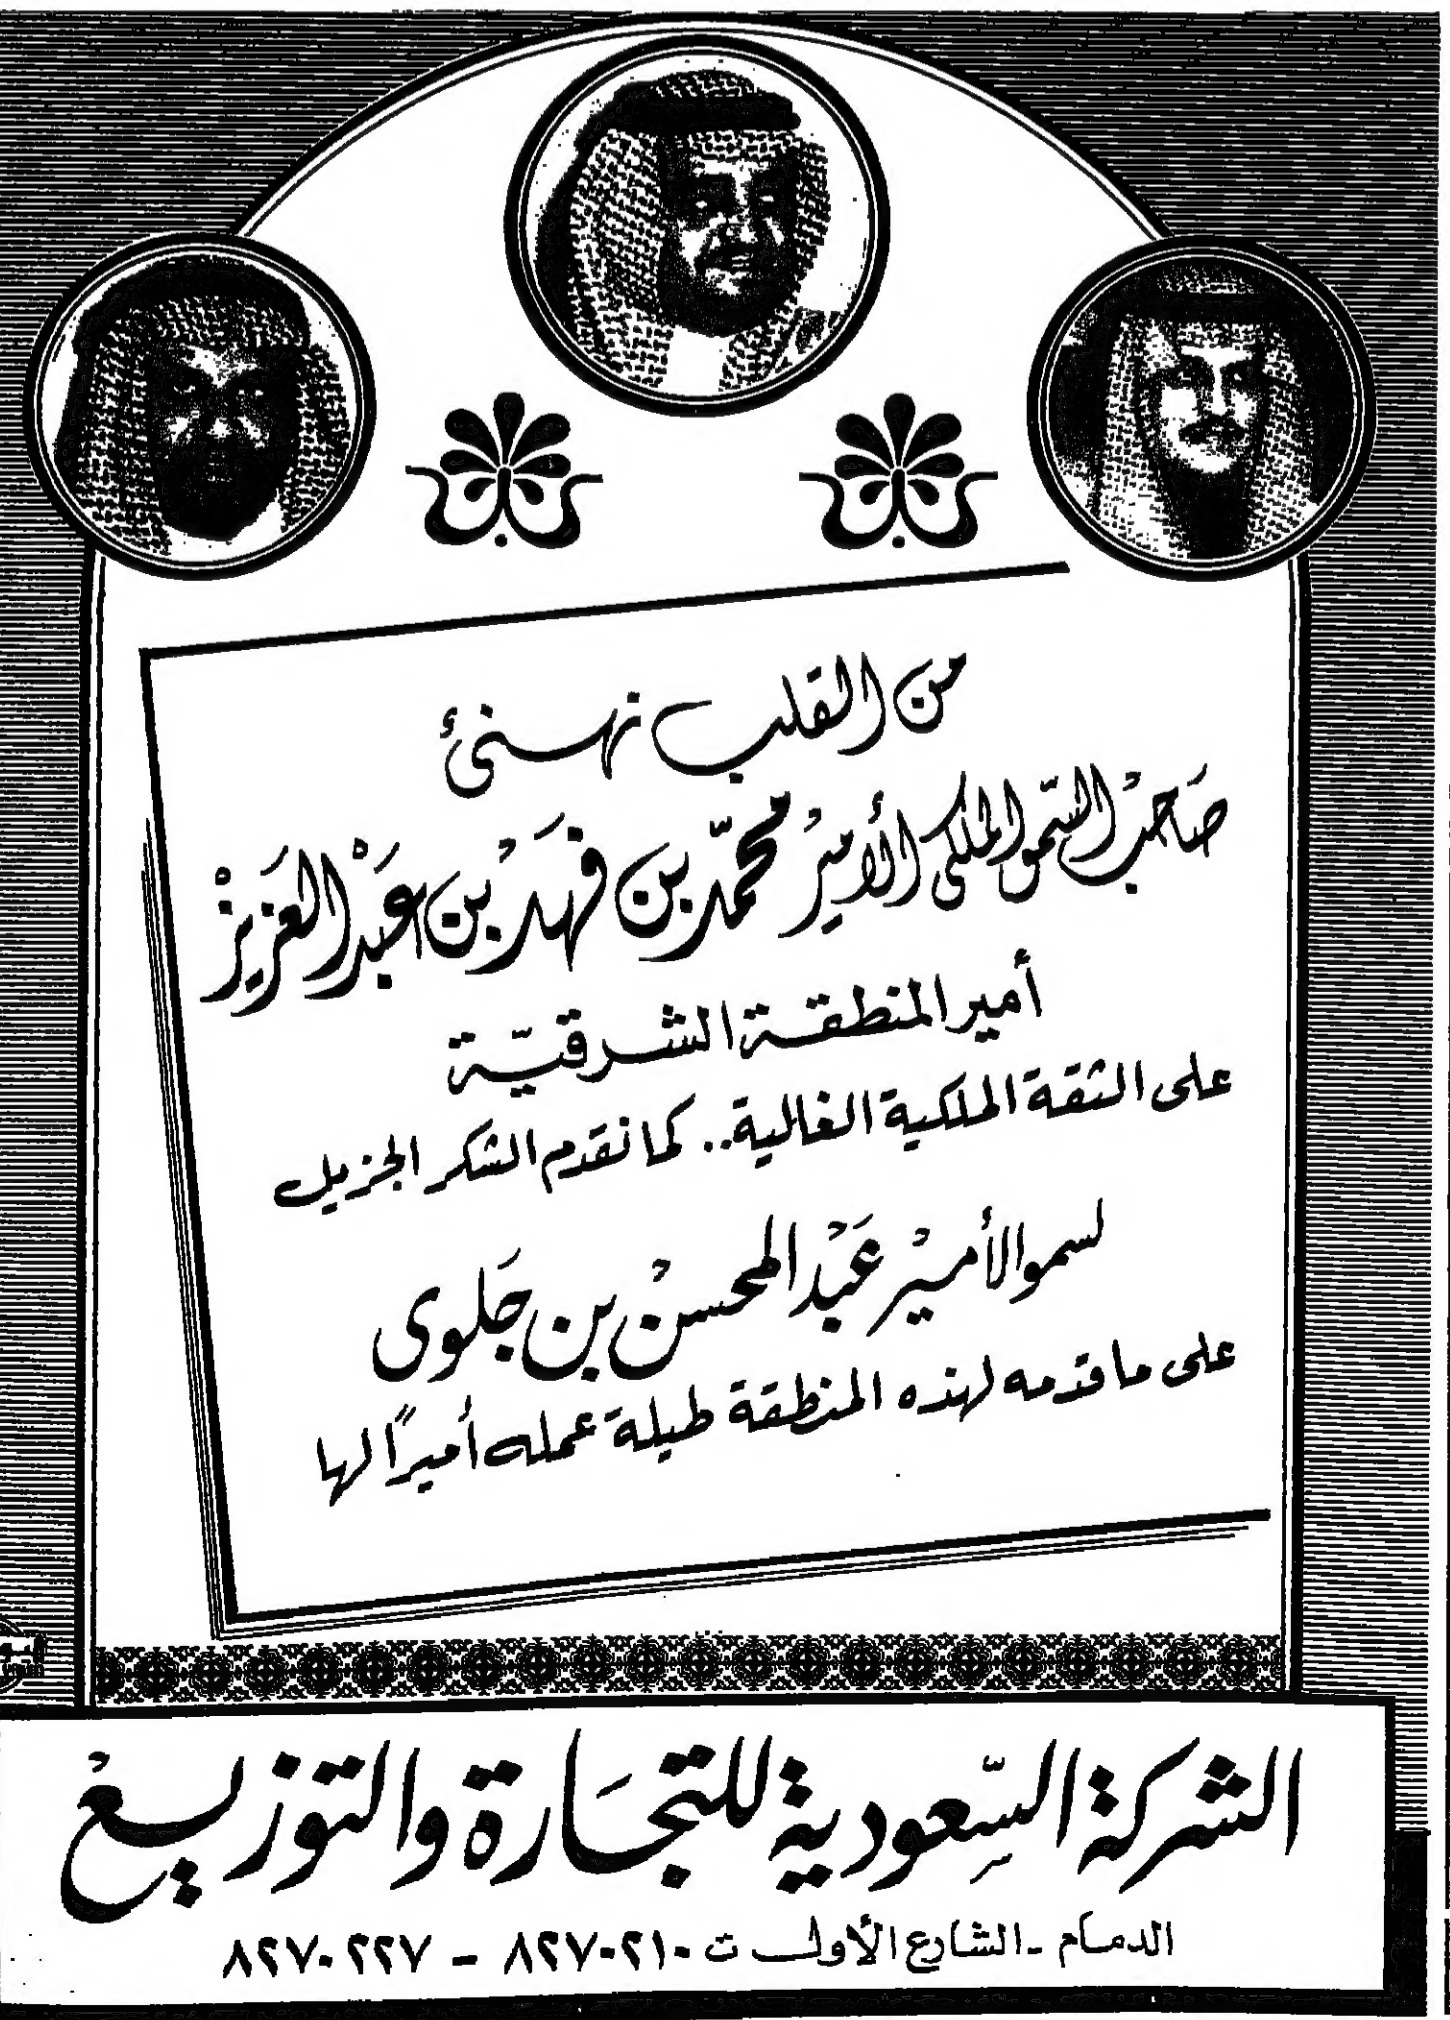 من القلب نهنئ
صَاحبُ السّمو الملكى الأميرُ محمّد بن فهَدُ بن عَبْد العَزيزْ
أمير المنطقة الشرقيّة
على الثقة الملكية الغالية.. كما نقدم الشكر الجزيل
لسمو الأميرُ عَبْد المحسنُ بن جَلوى
على ما قدمه لهذه المنطقة طيلة عمله أميرًا لها
الشركة السّعودية للتجَارة والتوزيعْ
الدمام - الشارع الأول ت ٨٢٧٠٢١٠ - ٨٢٧٠٢٢٧